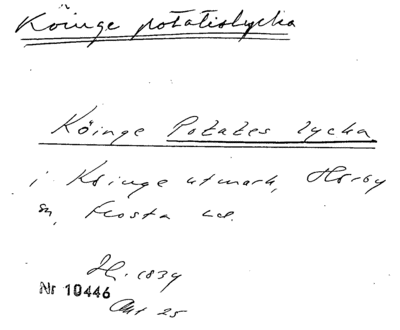 Köinge potatislycka
Köinge Potates lycka
i Köinge utmark, Hörby
sn, Frosta hd.
H. 1834
Nr 10446
Akt 25